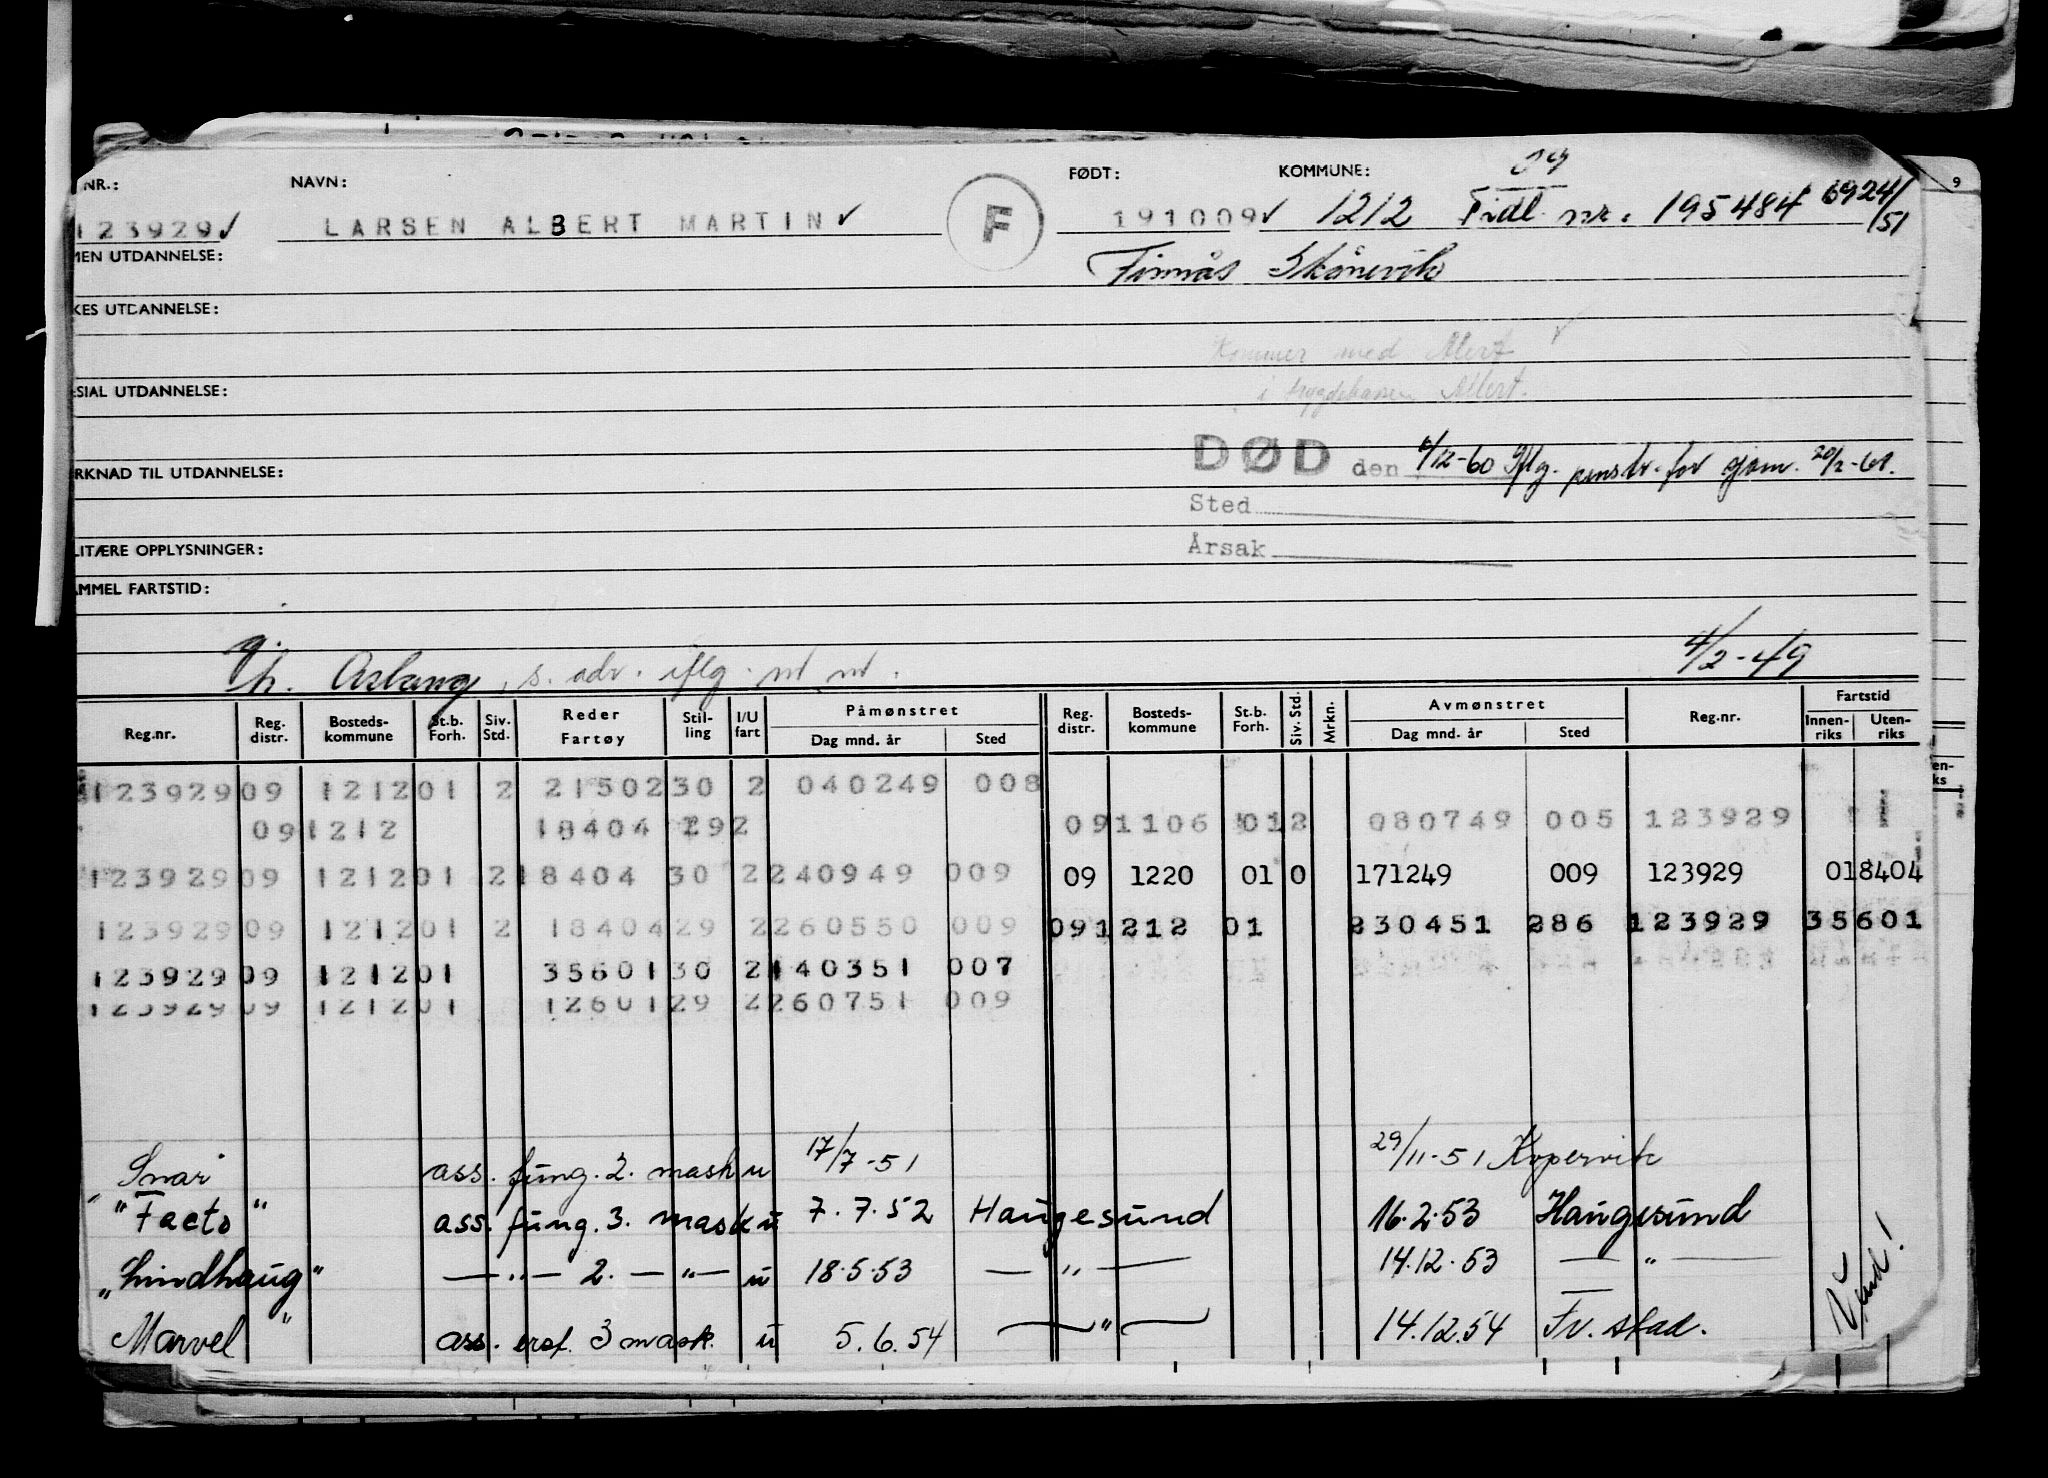 NR.: NAVN: FØDT: KOMMUNE: 09
123929✓ LARSEN ALBERT MARTIN✓ F 191009✓ 1212 Tidl. nr. 195484 6924/51
MEN UTDANNELSE: Finnås Skånevik
KES UTDANNELSE:
Kommer med Alert ✓
SIAL UTDANNELSE: i trygdekassen Alert.
DØD den 6/12-60 Iflg. penstr. for sjøm. 20/2-61.
RKNAD TIL UTDANNELSE:
Sted
LITÆRE OPPLYSNINGER: Årsak
AMMEL FARTSTID:
Aslaug, s. adv. iflg. 4/2-49
Reg.nr. Reg. distr. Bosteds-kommune St.b. Forh. Siv. Std. Reder Fartøy Stil-ling I/U fart Påmønstret Dag mnd. år Sted Reg. distr. Bosteds-kommune St.b. Forh. Siv. Std. Mrkn. Avmønstret Dag mnd. år Sted Reg.nr. Fartstid Innen-riks Uten-riks
123929 09 1212 01 2 21502 30 2 040249 008
09 1212 18404 29 2 09 1106 01 2 080749 005 123929
123929 09 1212 01 2 18404 30 2 240949 009 09 1220 01 0 171249 009 123929 018404
123929 09 1212 01 2 18404 29 2 260550 009 09 1212 01 230451 286 123929 35601
123929 09 1212 01 35601 30 2 140351 007
123929 09 1212 01 12601 29 2 260751 009
"Snar" ass. fung. 2. mask u 17/7-51 29/11-51 Kopervik
"Facto" ass. fung. 3. mask u 7.7.52 Haugesund 16.2.53 Haugesund
"Lindhaug" —"— 2. —"— u 18.5.53 —"— 14.12.53 —"—
Marvel" ass. erf. 3 mask. u 5.6.54 —"— 14.12.54 Fr. stad.
Vend!